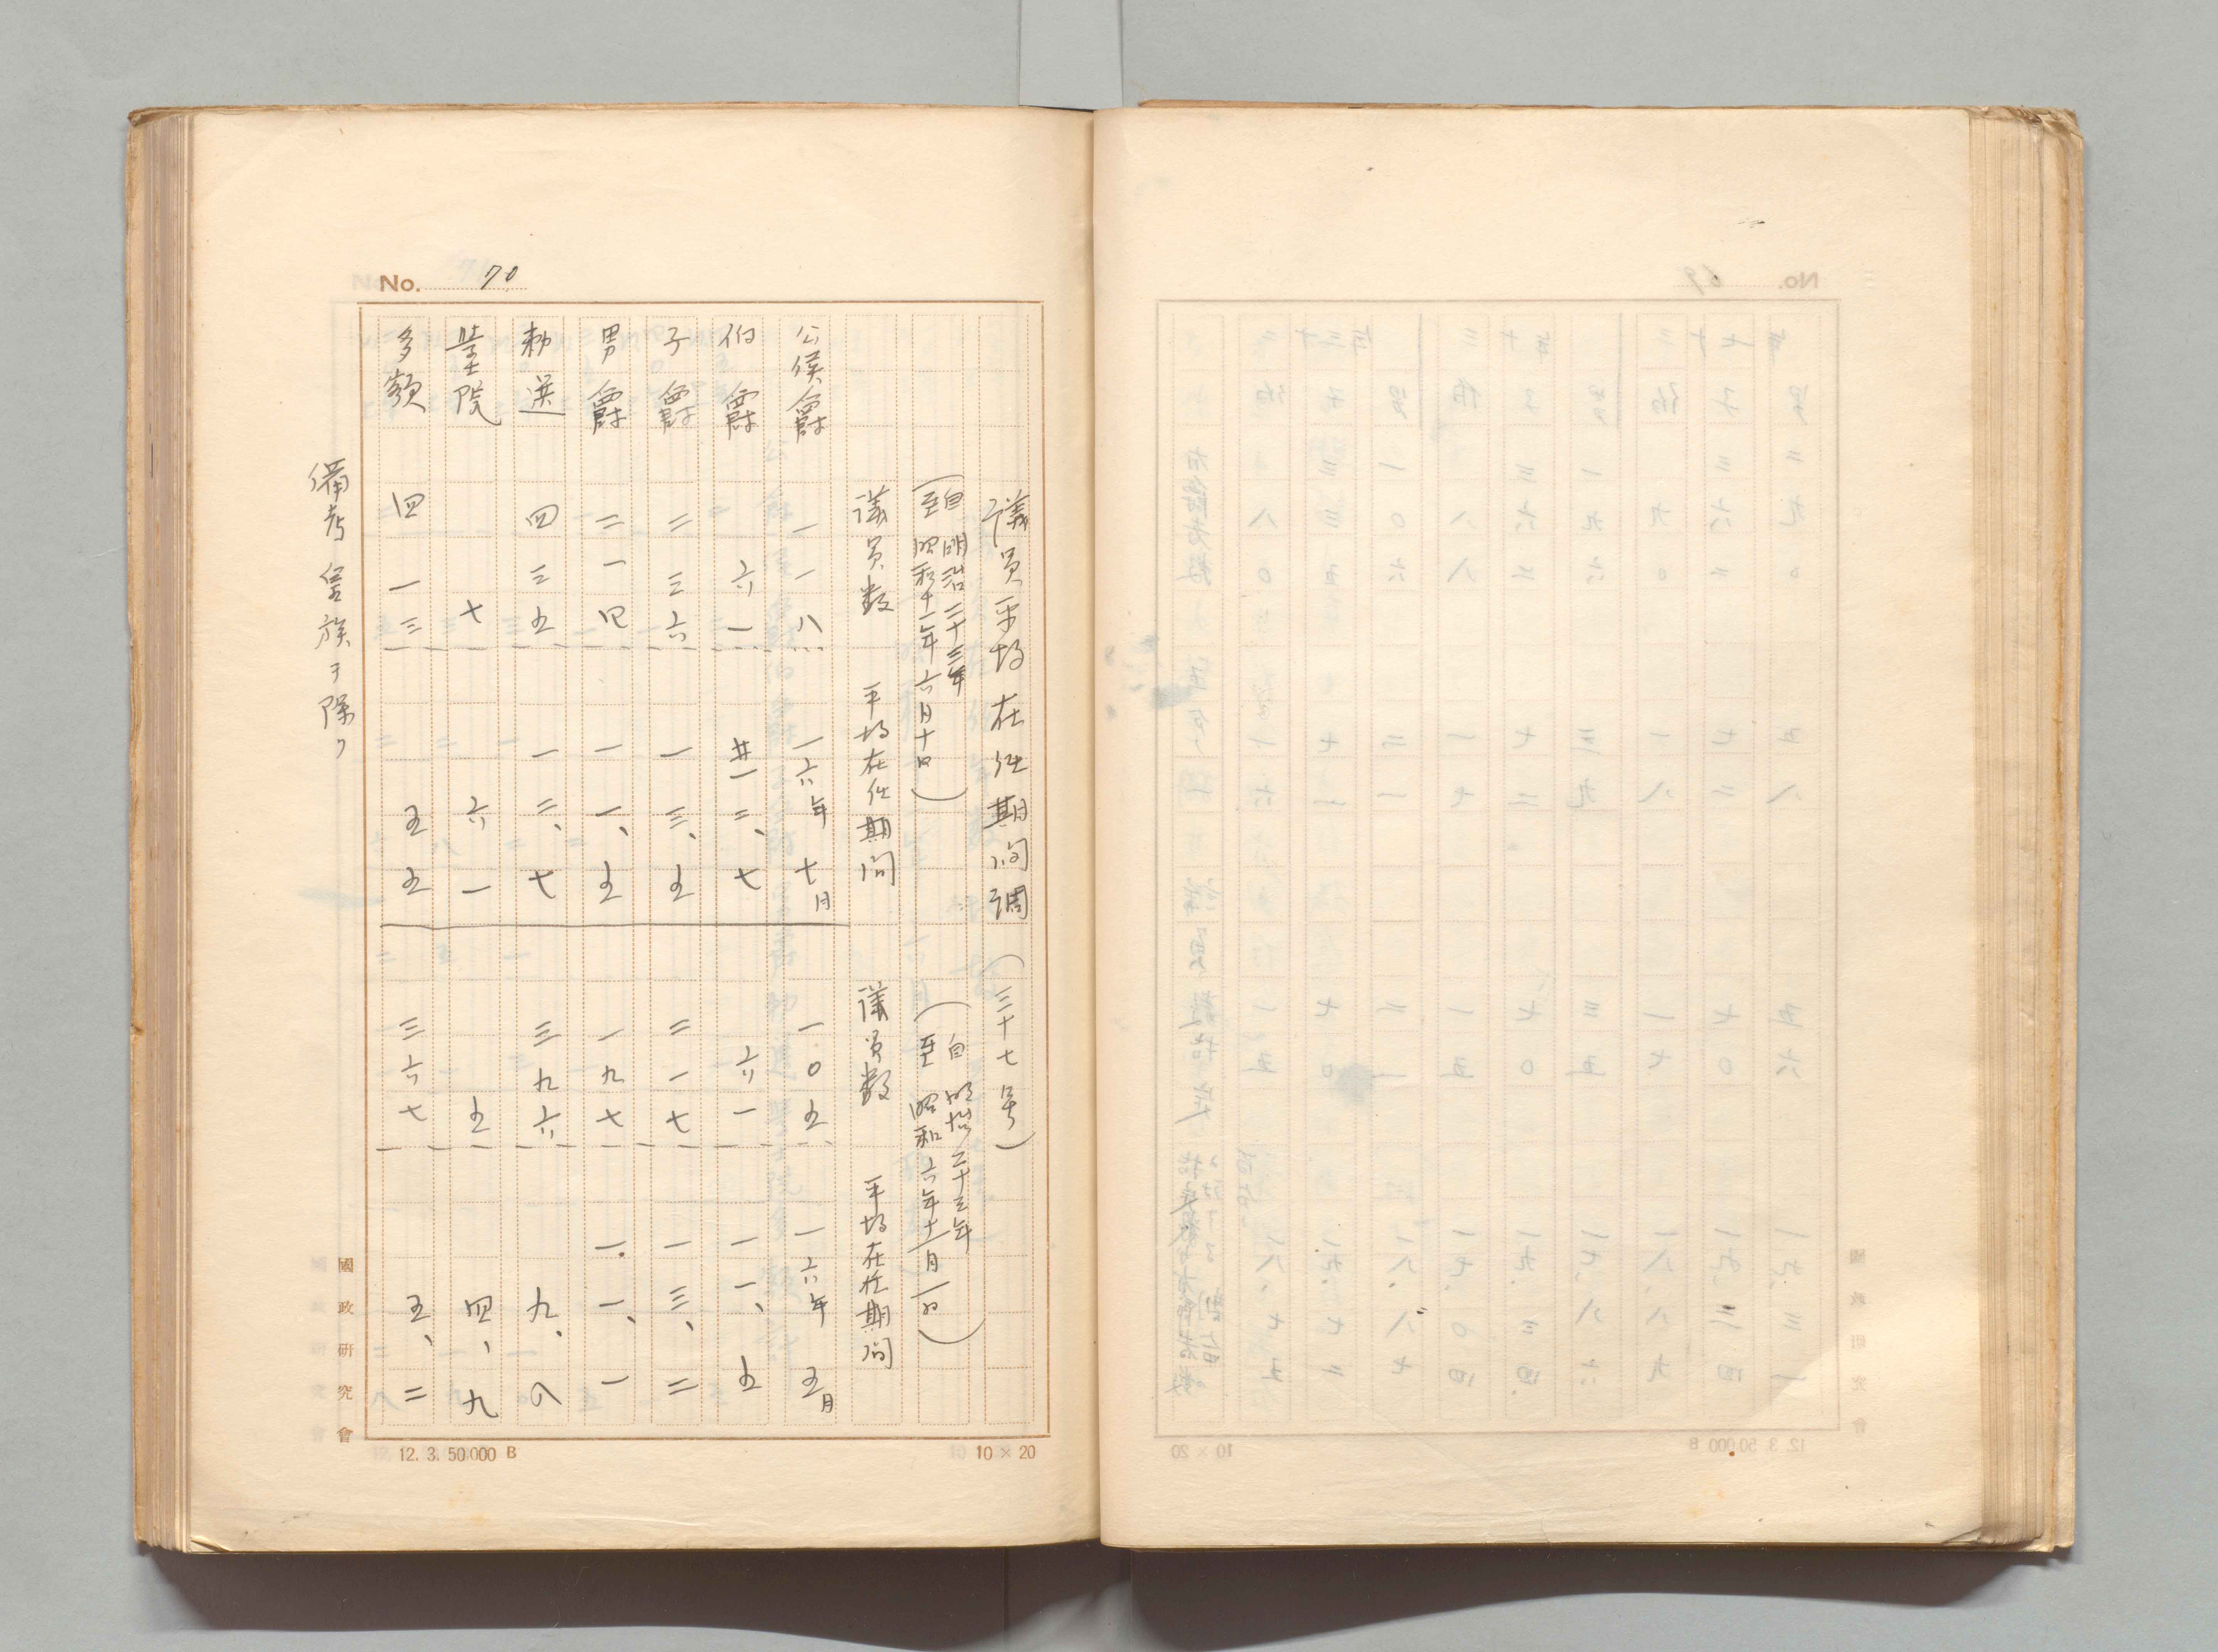 No. 70
議員平均在任期間調（三十七号）
（自明治二十三年
至昭和十一年六月十日）
（自明治二十三年
至昭和六年十一月一日）
議員数 平均在任期間 議員数 平均在任期間
公侯爵 一一八 一六年七月 一〇五 一六年五月
伯爵 六一 二、七 六一 一一、五
子爵 二三六 一三、五 二一七 一三、二
男爵 二一四 一一、五 一九七 一一、一
勅選 四三五 一二、七 三九六 九、八
学士院 七 六一 五 四、九
多額 四一三 五五 三六七 五、二
備考 皇族ヲ除ク
國政研究會
12. 3. 50,000 B
10 × 20